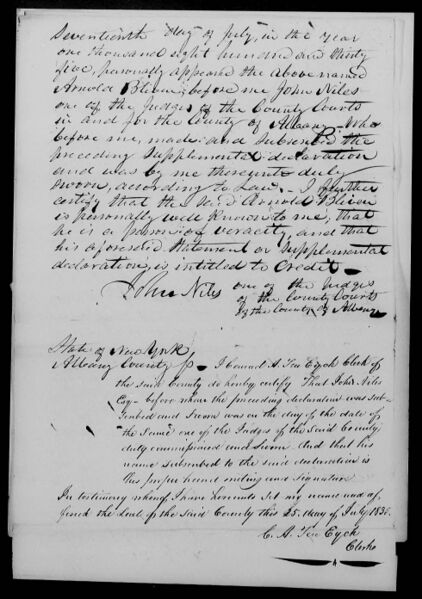 Seventeenth day of July, in the year
one thousand eight hundred and thirty
five, personally appeared the above named
Arnold Bliven, before me John Niles
one of the Judges of the County Courts
in and for the County of Albany - Who
before me, made and Subscribed the
preceding Supplemental declaration
and was by me thereunto duly
sworn, according to Law. - I further
certify that the said Arnold Bliven
is personally well known to me, that
he is a person of veracity, and that
his aforesaid statement or Supplemental
declaration, is intitled to Credit -
John Niles one of the Judges
of the County Courts
of the County of Albany
State of New York
Albany County ss - I Conrad A. Ten Eyck Clerk of
the said County do hereby certify That John Niles
Esq - before whom the preceding declaration was Sub-
scribed and Sworn was on the day of the date of
the Same one of the Judges of the Said County
duly commissioned and Sworn And that his
name Subscribed to the said declaration is
his proper hand writing and signature
In testimony whereof I have hereunto Set my name and af-
fixed the Seal of the said County this 25. day of July 1835.
C. A. Ten Eyck
Clerk